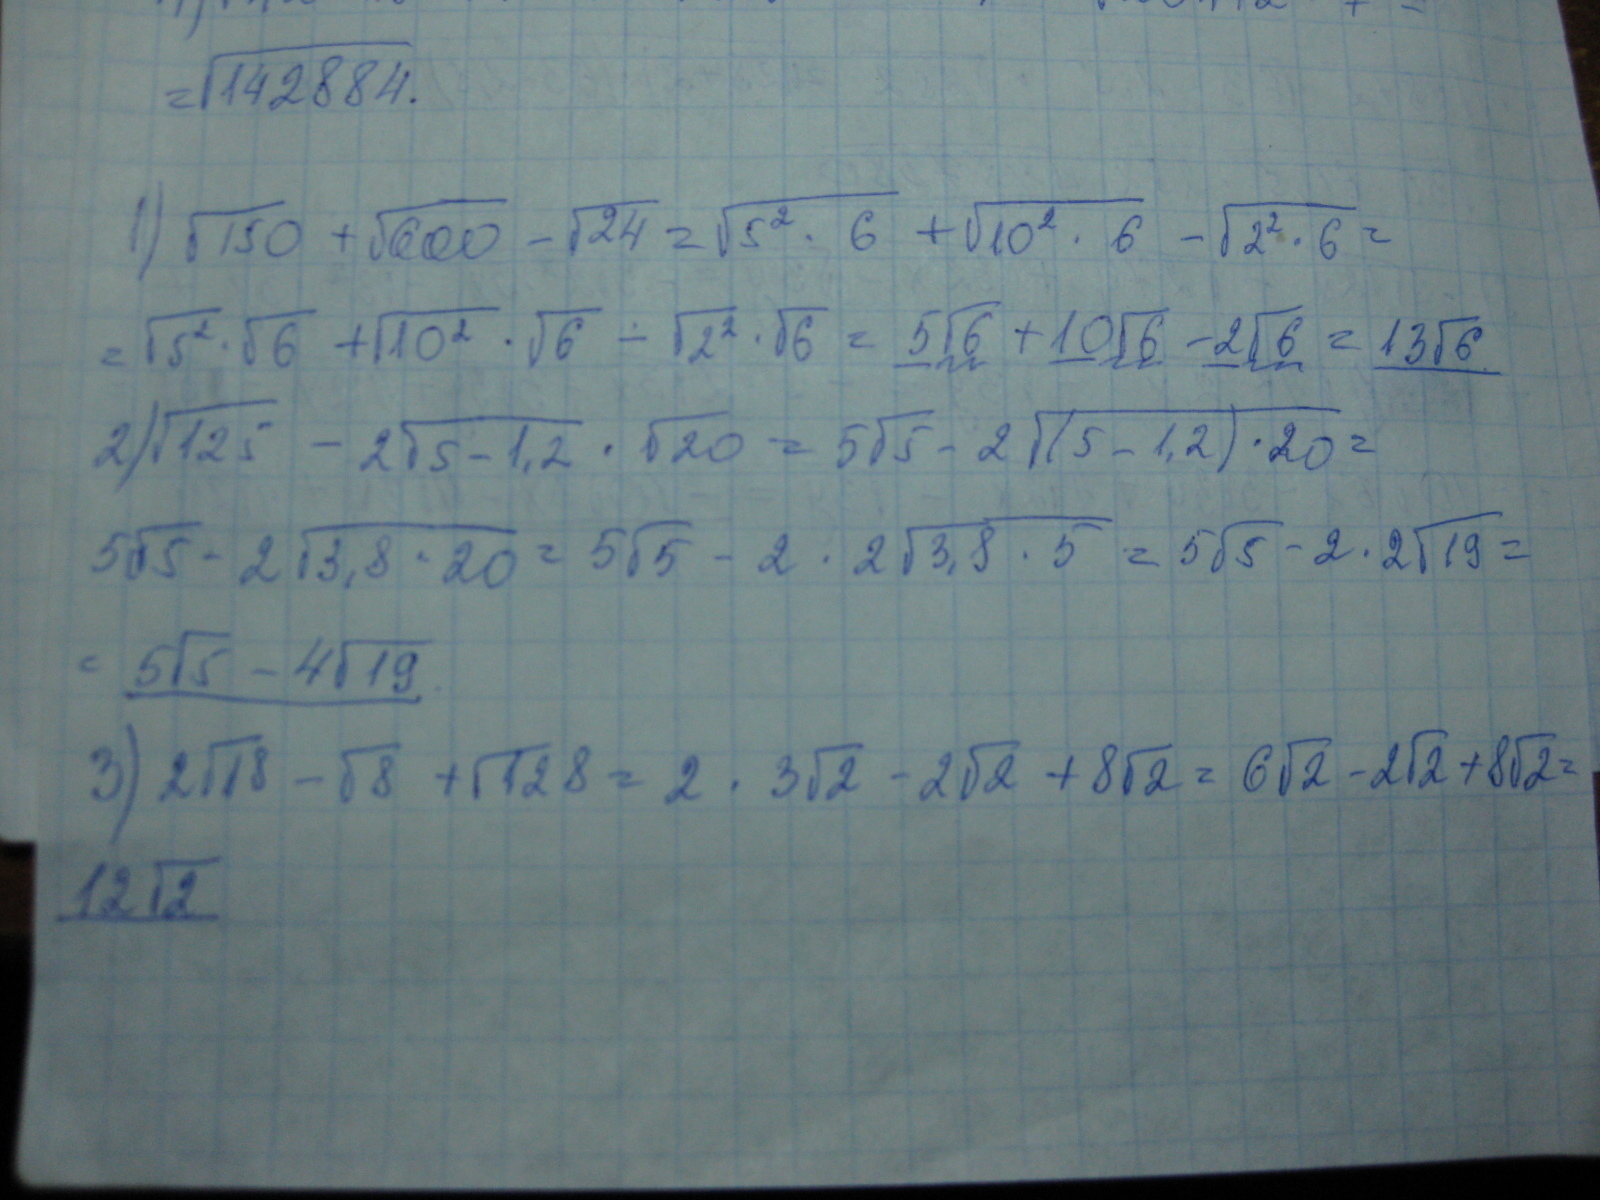 =√142884.
1) √150 + √600 - √24 = √5² · 6 + √10² · 6 - √2² · 6 =
= √5² · √6 + √10² · √6 - √2² · √6 = 5√6 + 10√6 - 2√6 = 13√6
2) √125 - 2√5-1,2 · √20 = 5√5 - 2√(5-1,2)·20 =
5√5 - 2√3,8·20 = 5√5 - 2 · 2√3,8·5 = 5√5 - 2·2√19 =
= 5√5 - 4√19.
3) 2√18 - √8 + √128 = 2 · 3√2 - 2√2 + 8√2 = 6√2 - 2√2 + 8√2 =
12√2